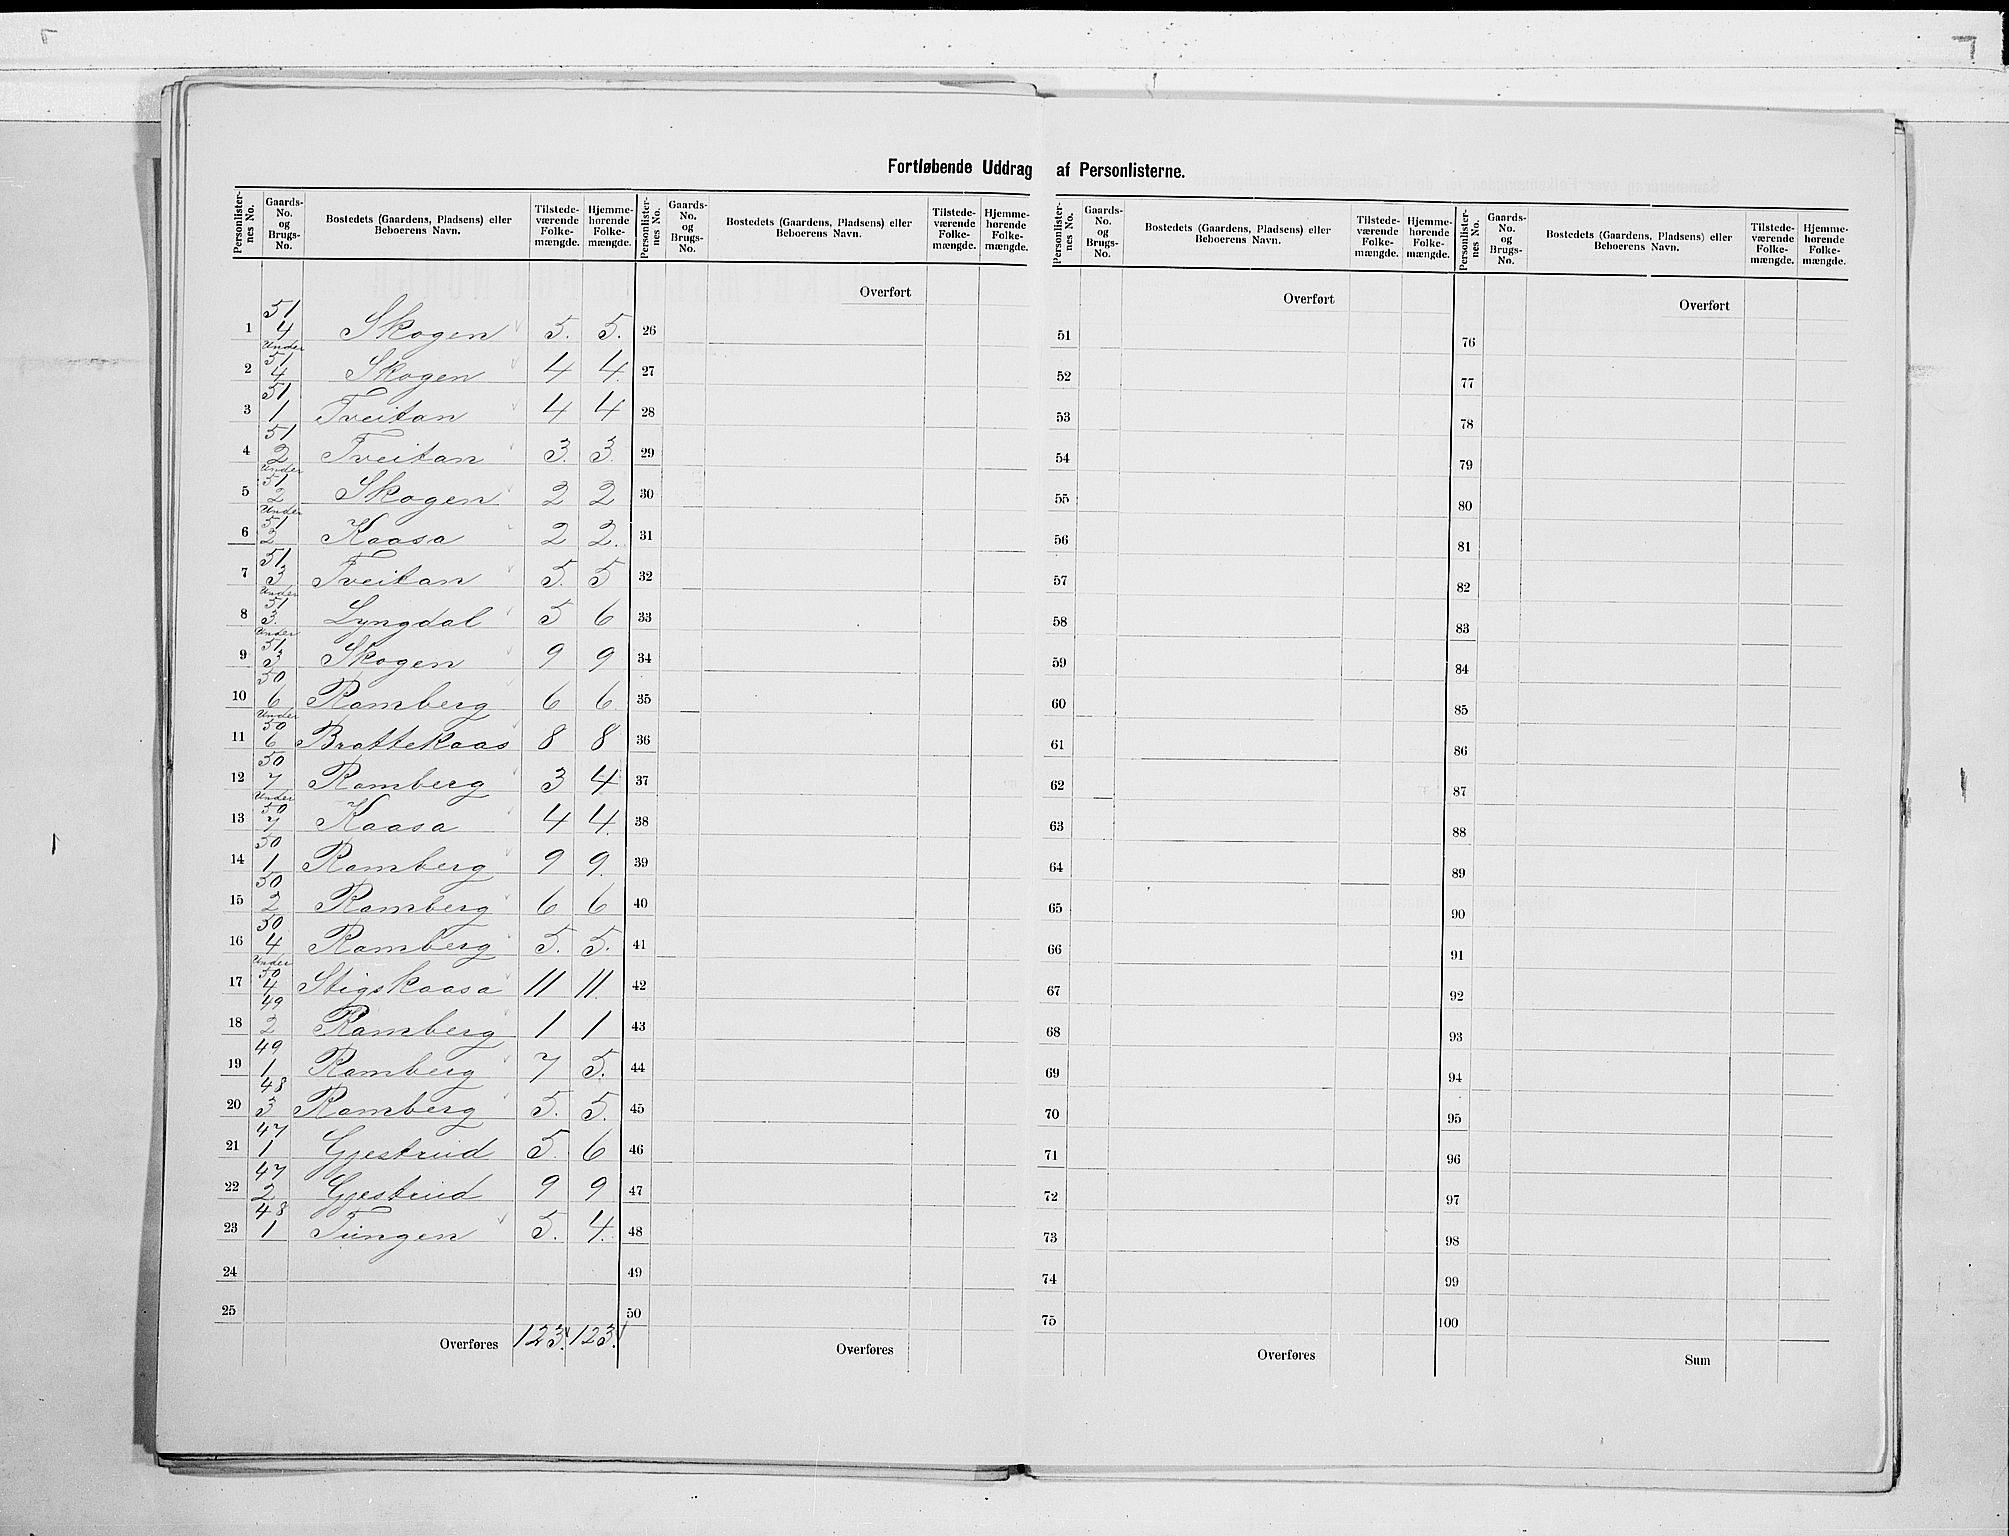 Fortløbende Uddrag af Personlisterne.
Personlister-nes No. Gaards-No. og Brugs-No. Bostedets (Gaardens, Pladsens) eller Beboerens Navn. Tilstede-værende Folke-mængde. Hjemme-hørende Folke-mængde.
1 51/4 Skogen 5. 5.
2 Under 51/4 Skogen 4 4.
3 51/1 Tveitan 4 4
4 51/2 Tveitan 3. 3.
5 Under 51/2 Skogen 2 2
6 Under 51/2 Kaasa 2 2.
7 51/3 Tveitan 5. 5
8 Under 51/3. Lyngdal 5 6
9 Under 51/3 Skogen 9 9
10 50/6 Ramberg 6 6
11 Under 50/6 Brattekaas 8 8
12 50/7 Ramberg 3 4
13 Under 50/7 Kaasa 4 4.
14 50/1 Ramberg 9 9.
15 50/2 Ramberg 6 6
16 50/4 Ramberg 5. 5.
17 Under 50/4 Stigskaasa 11 11.
18 49/2 Ramberg 1 1
19 49/1 Ramberg 7 5.
20 48/3 Ramberg 5. 5.
21 47/1 Gjestrud 5. 6
22 47/2 Gjestrud 9 9
23 48/1 Tungen 5. 4.
24
25
Overføres 123. 123.
Personlister-nes No. Gaards-No. og Brugs-No. Bostedets (Gaardens, Pladsens) eller Beboerens Navn. Tilstede-værende Folke-mængde. Hjemme-hørende Folke-mængde.
Overført
26
27
28
29
30
31
32
33
34
35
36
37
38
39
40
41
42
43
44
45
46
47
48
49
50
Overføres
Personlister-nes No. Gaards-No. og Brugs-No. Bostedets (Gaardens, Pladsens) eller Beboerens Navn. Tilstede-værende Folke-mængde. Hjemme-hørende Folke-mængde.
Overført
51
52
53
54
55
56
57
58
59
60
61
62
63
64
65
66
67
68
69
70
71
72
73
74
75
Overføres
Personlister-nes No. Gaards-No. og Brugs-No. Bostedets (Gaardens, Pladsens) eller Beboerens Navn. Tilstede-værende Folke-mængde. Hjemme-hørende Folke-mængde.
Overført
76
77
78
79
80
81
82
83
84
85
86
87
88
89
90
91
92
93
94
95
96
97
98
99
100
Sum